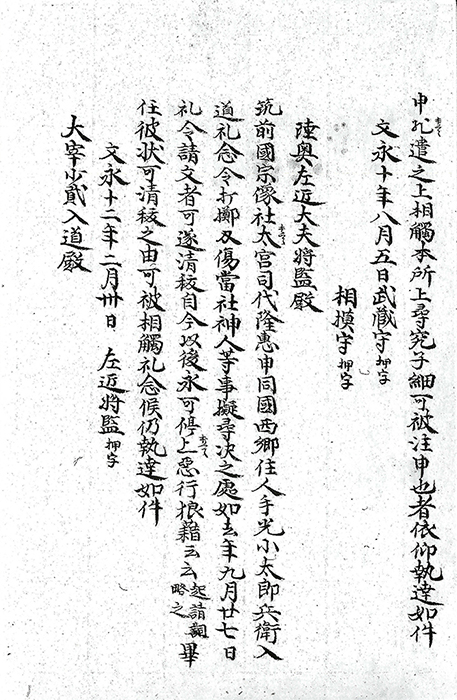 申旡遣之上相觸本所上尋究子細可被注申也者依仰執達如件
文永十年八月五日武藏守押字
相摸守押字
陸奥左近大夫將監殿
筑前國宗像社太宮司代隆惠申同國西郷住人手光小太郎兵衛入
道礼念令打擲刃傷當社神人等事擬尋决之處如去年九月廿七日
礼念請文者可遂清祓自今以後永可停止惡行狼藉云云起請詞略之畢
任彼状可清祓之由可被相觸礼念候仍執達如件
文永十二年二月卅日 左近將監押字
大宰少貳入道殿